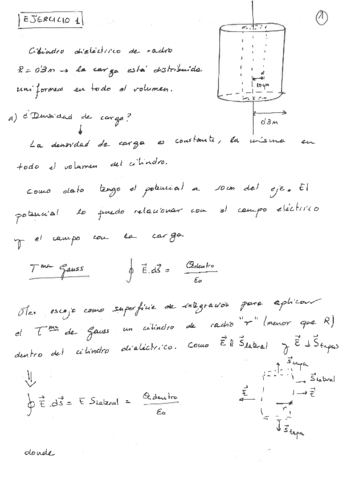 EJERCICIO 1
1
Cilindro dieléctrico de radio
R = 0'3m → la carga está distribuida
uniforme en todo el volumen.
10cm
0'3m
a) ¿Densidad de carga?
La densidad de carga es constante, la misma en
todo el volumen del cilindro.
Como dato tengo el potencial a 10cm del eje. El
potencial lo puedo relacionar con el campo eléctrico
y el campo con la carga.
Tma Gauss ∮ E⃗·ds⃗ = Qdentro/ε0
escojo como superficie de integración para aplicar
el Tma de Gauss un cilindro de radio "r" (menor que R)
dentro del cilindro dieléctrico. Como E⃗ ∥ S⃗lateral y E⃗ ⊥ S⃗tapas
S⃗tapa
S⃗lateral
E⃗
E⃗
r
S⃗tapa
∮ E⃗·ds⃗ = E Slateral = Qdentro/ε0
donde